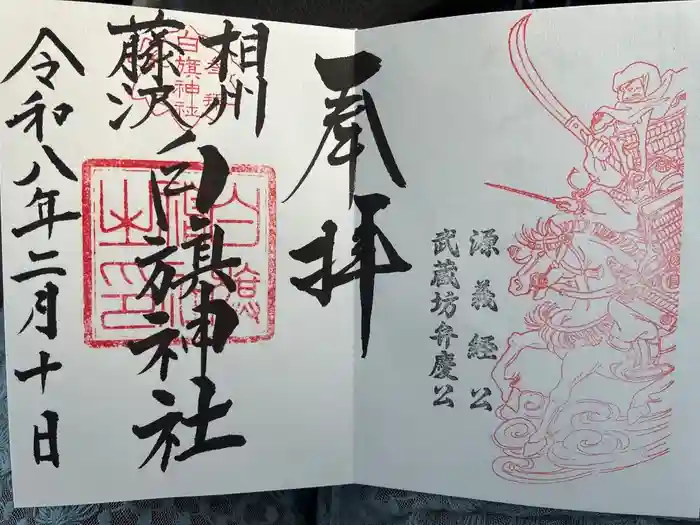 源義経公
武蔵坊弁慶公
奉拝
相州
藤沢
白旗神社
令和八年二月十日
白旗神社